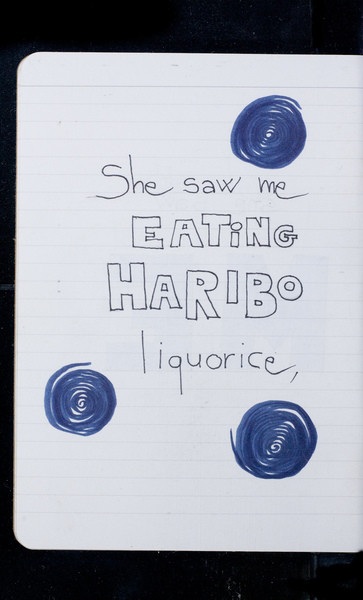 She saw me
EATiNG
HARIBO
liquorice,